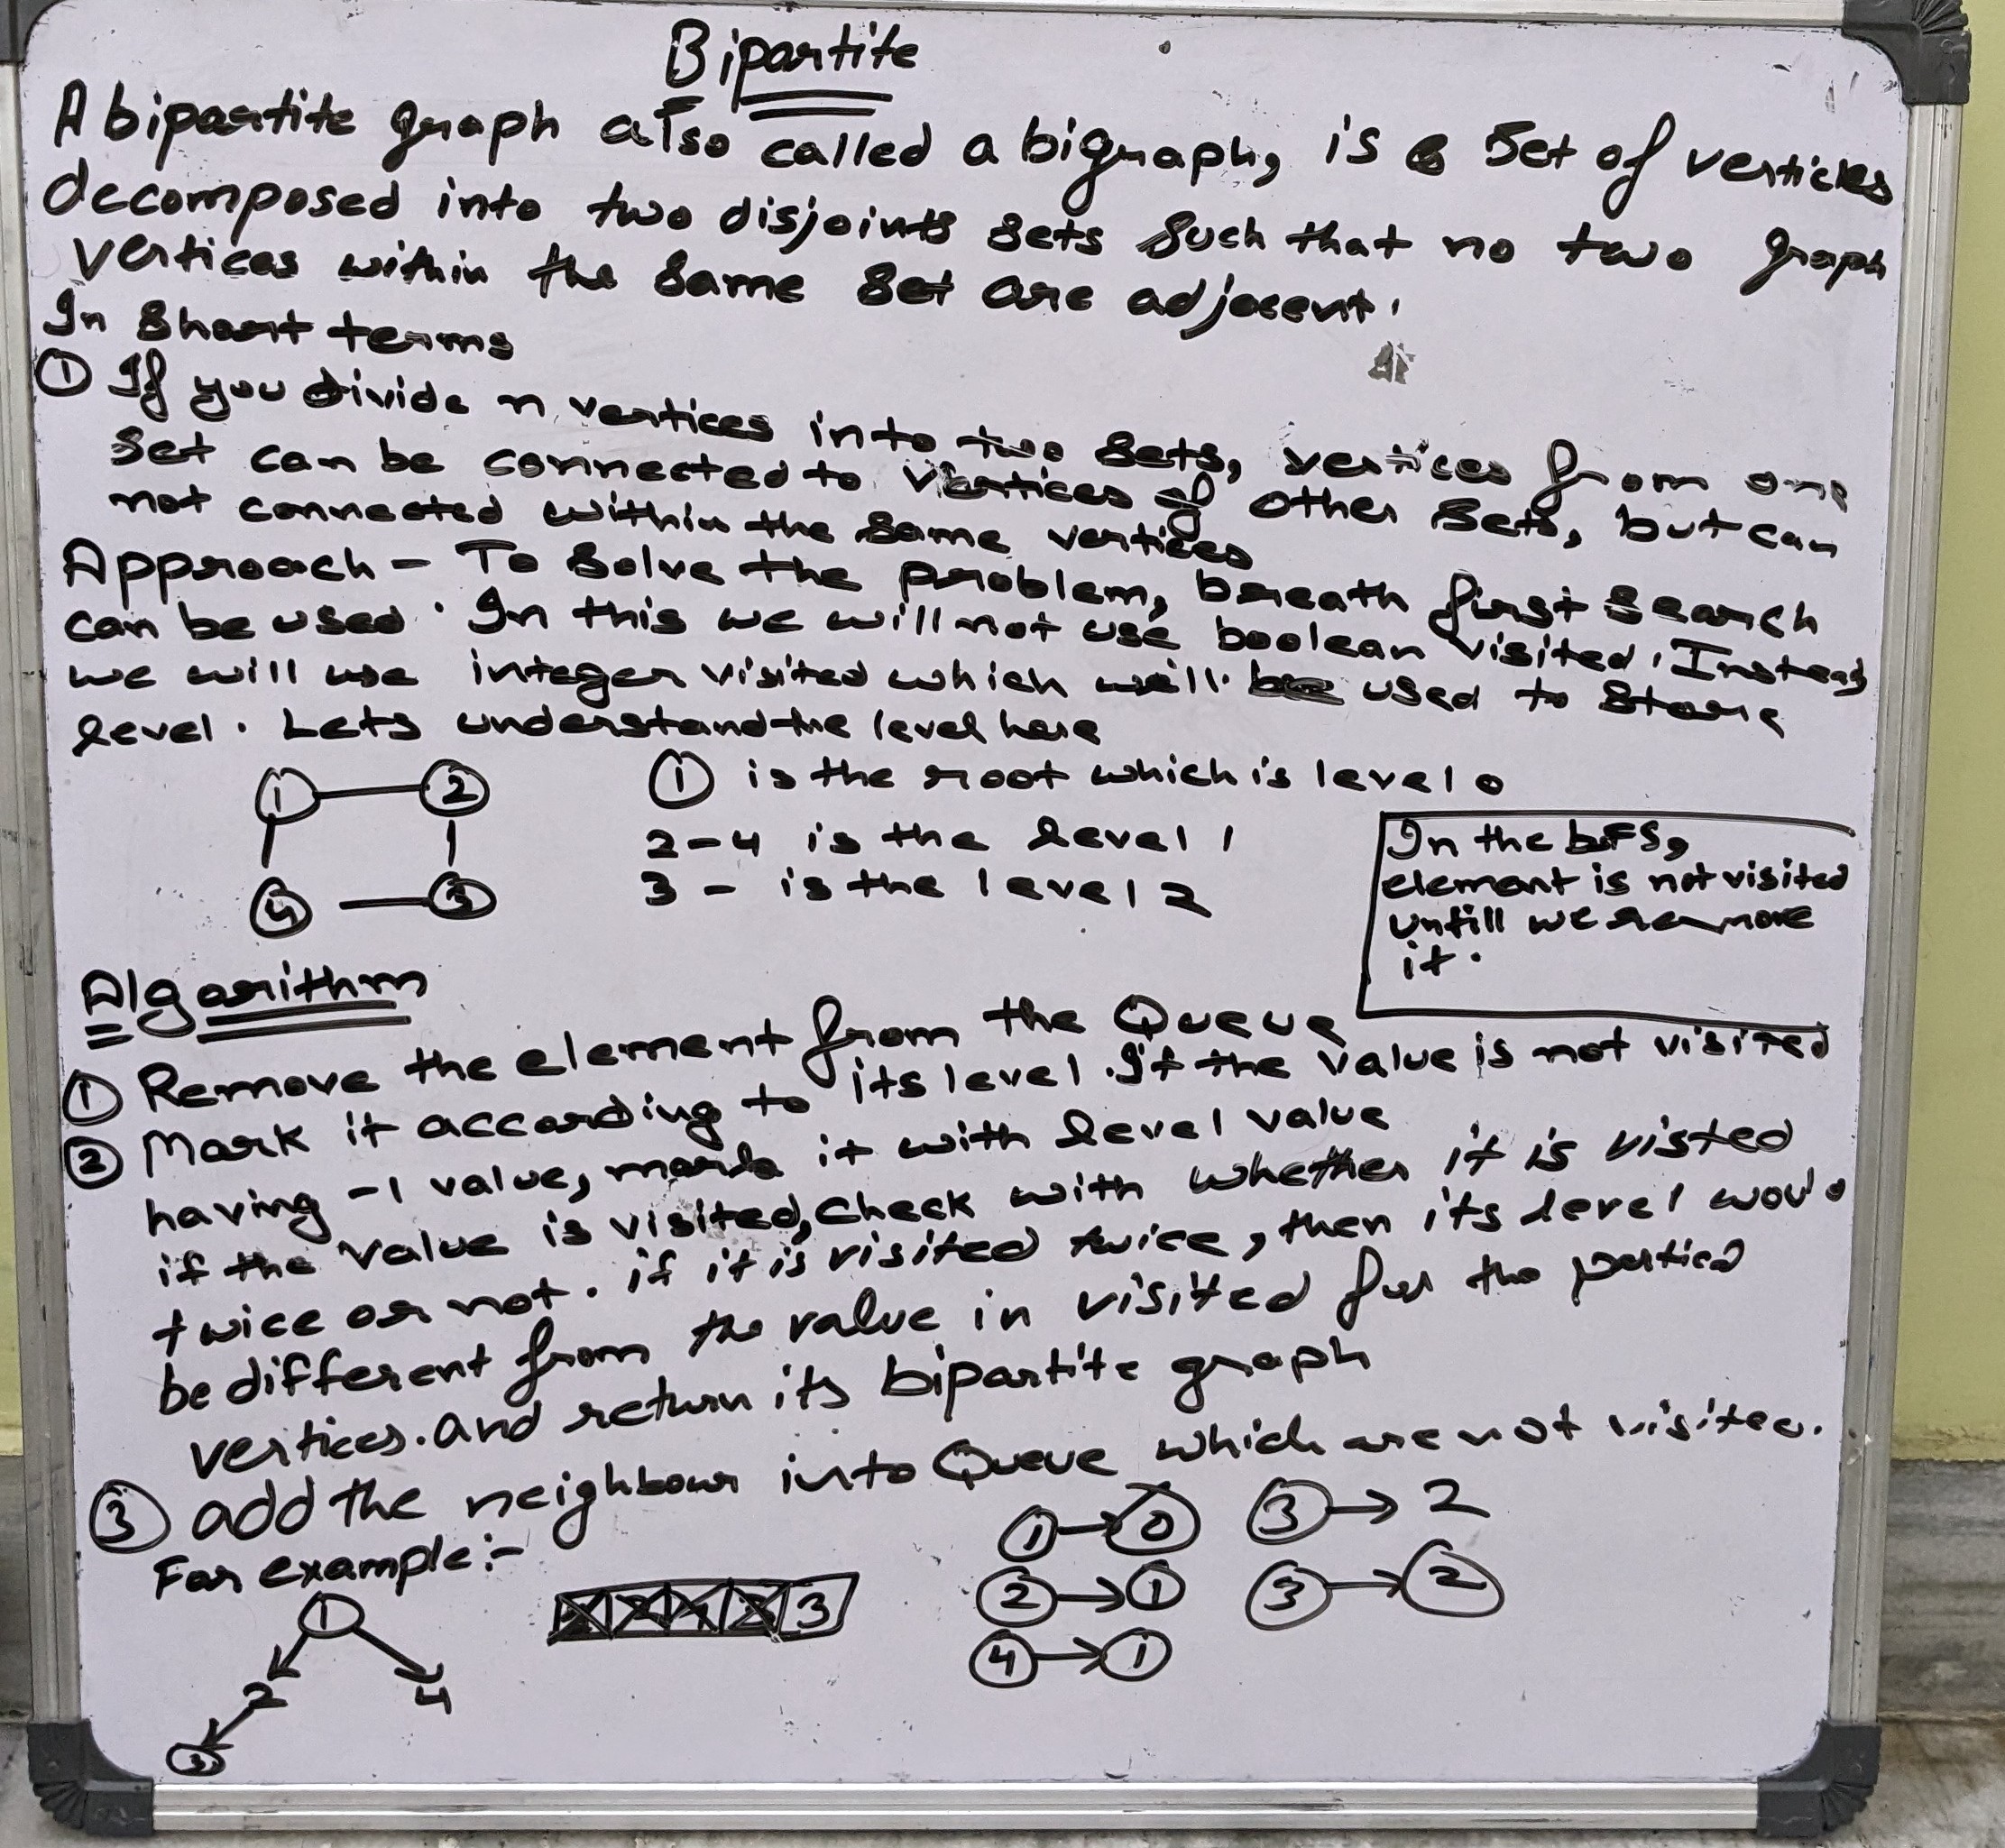 Bipartite
A bipartite graph also called a bigraph, is a set of verticies
decomposed into two disjoints sets such that no two graph
vertices within the same set are adjacent.
In short terms
① If you divide n vertices into two sets, vertices from one
set can be connected to vertices of other sets, but can
not connected within the same vertices
Approach - To solve the problem, breath first search
can be used. In this we will not use boolean visited. Instead
we will use integer visited which will be used to store
level. Lets understand the level here
① is the root which is level 0
2-4 is the level 1
3 - is the level 2
1 2
4 3
In the bFS,
element is not visited
untill we remove
it.
Algorithm
① Remove the element from the Queue
② Mark it according to its level. If the value is not visited
having -1 value, mark it with level value
if the value is visited, check with whether it is visted
twice or not. if it is visited twice, then its level would
be different from the value in visited for the
vertices. and return its bipartite graph
③ add the neighbour into Queue which are not visited.
For example:-
1
2 4
3
3
1 → 0
2 → 1
4 → 1
3 → 2
3 → 2